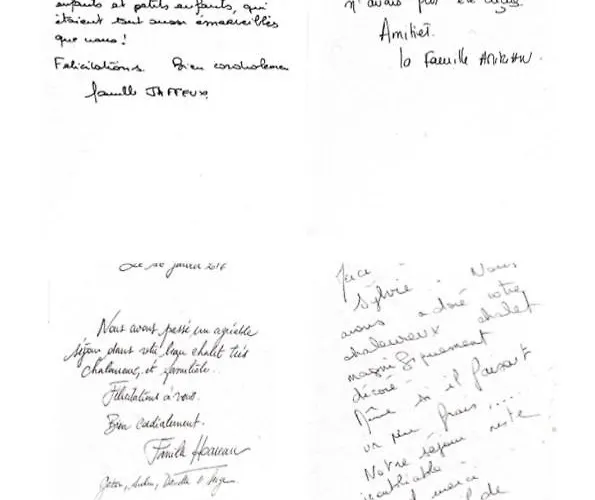 enfants et petits enfants, qui
étaient tout aussi émerveillés
que nous !
Félicitations. Bien cordialement
famille JAFFEUX
n'avais pas été
Amitiés.
la Famille
janvier 2016
Nous avons passé un agréable
séjour dans votre beau chalet très
chaleureux, et familiale.
Félicitations à vous.
Bien cordialement.
Famille
Sylvie. Nous
avons adoré votre
chaleureux chalet
magnifiquement
décoré
Même si il faisait
un peu frais.....
Notre séjour reste
inoubliable.
merci
de